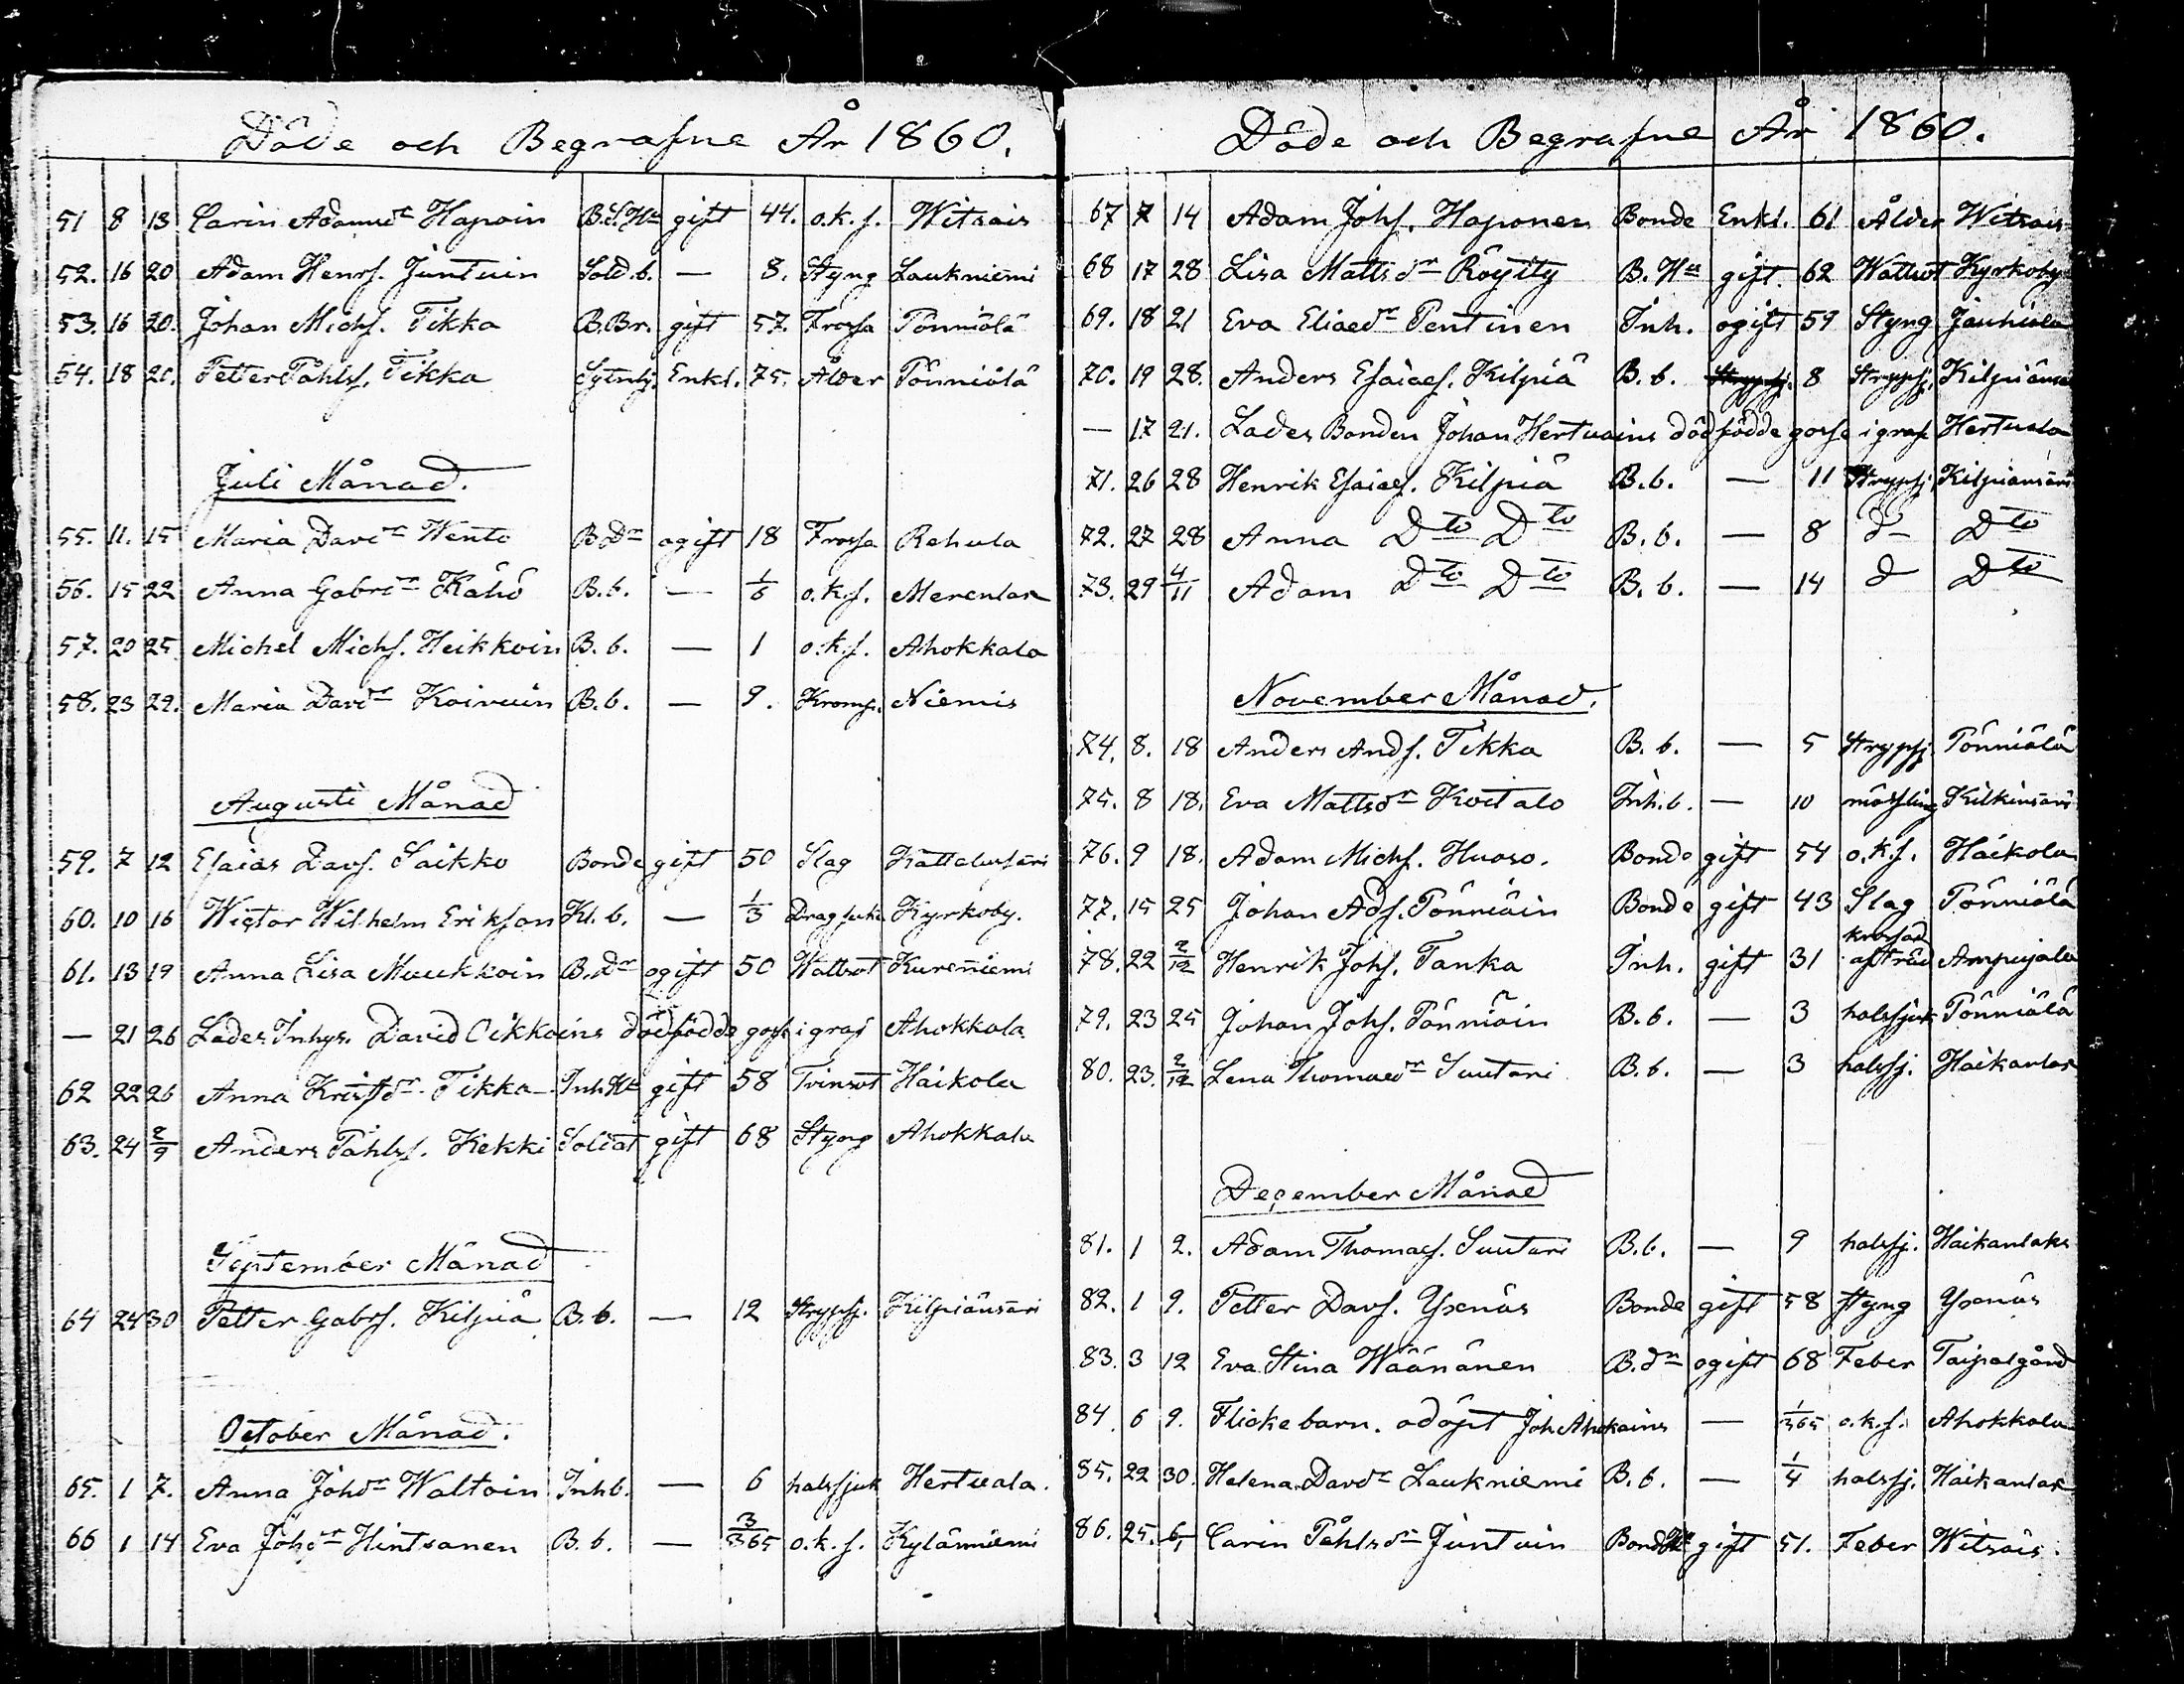 Döde och Begrafne År 1860.
51 8 13 Carin Adamsdr Hapoin B.S.Hu gift 44. o.k.s. Witsais
52. 16 20 Adam Henrs. Juntuin Sold.b. — 8. Styng Laukniemi
53. 16 20. Johan Michs. Tikka B.Br. gift 57. Frossa Pönniälä
54. 18 21. Petter Påhls. Tikka Sytnhj. Enkl. 75. Ålder Pönniälä
Juli Månad.
55. 11. 15 Maria Davdr Wento B.Dr ogift 18 Frossa Rehula
56. 15 22 Anna Gabrdr Kähö B.b. — 1/6 o.k.s. Merenlax
57. 20 25 Michel Michs. Heikkoin B.b. — 1 o.k.s. Ahokkala
58. 23 29. Maria Davdr Koivuin B.b. — 9. Kromp. Niemis
Augusti Månad
59. 7 12 Esaias Davs. Saikko Bonde gift 50 Slag Kattelussari
60. 10 16 Wictor Wilhelm Erikson Kl.b. — 1/3 Dragsuka Kyrkoby.
61. 13 19 Anna Lisa Muukkoin B.Dr ogift 50 Wattusot Kureniemi
— 21 26 Lades Inhys. David Oikkoins dödfödde gosse i graf Ahokkala
62 22 26 Anna Kristdr Tikka Inh.Hu gift 58 Tvinsot Haikola
63. 24 2/9 Anders Påhls. Kekki Soldat gift 68 Styng Ahokkala
September Månad
64 24 30 Petter Gabrs. Kilpiä B.b. — 12 Strypsj. Kilpiänsari
October Månad.
65. 1 7. Anna Johdr Waltoin Inhb. — 6 halssjuk Hertuala.
66 1 14 Eva Johdr Hintsanen B.b. — 3/365 o.k.s. Kylänniemi
Döde och Begrafne År 1860.
67 7 14 Adam Johs. Haponen Bonde Enkl. 61 Ålder Witsais
68 17 28 Lisa Mattsdr Röytty B.Hu gift. 62 Wattusot Kyrkoby
69. 18 21 Eva Eliaedr Pentinen Inh. ogift 59 Styng Jauhiala
70. 19 28. Anders Esaiaes. Kilpiä B.b. Strypsj. 8 Strypsj. Kilpiänsa
— 17 21. Lades Bonden Johan Hertuains dödfödde gosse i graf Hertuala
71. 26 28 Henrik Esaiaes. Kilpiä B.b. — 11 Strypsj. Kilpiänsari
72. 27 28 Anna Dto Dto B.b. — 8 d Dto
73. 29 4/11 Adam Dto Dto B.b. — 14 d Dto
November Månad.
74. 8. 18 Anders Ands. Tikka B.b. — 5 Strypsj. Pönniälä
75. 8 18. Eva Mattsdr Koitalo Inh.b. — 10 mässling Kilkinsari
76. 9 18. Adam Michs. Huoso. Bonde gift 54 o.k.s. Haikola
77. 15 25 Johan Ads. Pönniäin Bonde gift 43 Slag Pönniälä
78. 22 2/12 Henrik Johs. Tanka Inh. gift 31 krossad af träd Ampujala
79. 23 25 Johan Johs. Pönniäin B.b. — 3 halssjuk Pönniälä
80. 23. 2/12 Lena Thomaedr Suutari B.b. — 3 halssj. Haikanlax
December Månad
81. 1 2. Adam Thomaes. Suutari B.b. — 9 halssj. Haikanlaks
82. 1 9. Petter Davs. Yxnäs Bonde gift 58 Styng Yxnäs
83. 3 12 Eva Stina Wäänänen B.dr ogift 68 Feber Taipalgård
84. 6 9. Flickebarn. odöpt Joh Ahokains — 1/365 o.k.s. Ahokkala
85. 22 30. Helena Davdr Laukniemi B.b. — 1/4 halssj. Haikanlax
86. 25. 6/1 Carin Påhlsdr Juntuin BondHu gift 51. Feber Witsais.